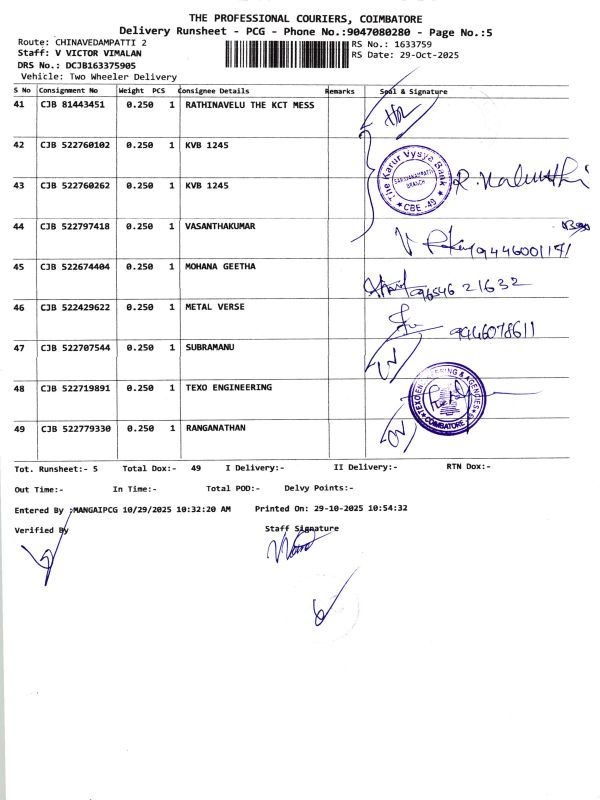 THE PROFESSIONAL COURIERS, COIMBATORE
Delivery Runsheet - PCG - Phone No.:9047080280 - Page No.:5
Route: CHINAVEDAMPATTI 2 RS No.: 1633759
Staff: V VICTOR VIMALAN RS Date: 29-Oct-2025
DRS No.: DCJB163375905
Vehicle: Two Wheeler Delivery
S No Consignment No Weight PCS Consignee Details Remarks Seal & Signature
41 CJB 81443451 0.250 1 RATHINAVELU THE KCT MESS
42 CJB 522760102 0.250 1 KVB 1245
The Karur Vysya Bank
BRANCH
★ CBE -49 ★
43 CJB 522760262 0.250 1 KVB 1245
44 CJB 522797418 0.250 1 VASANTHAKUMAR
45 CJB 522674404 0.250 1 MOHANA GEETHA 9654621632
46 CJB 522429622 0.250 1 METAL VERSE 9446078611
47 CJB 522707544 0.250 1 SUBRAMANU
48 CJB 522719891 0.250 1 TEXO ENGINEERING
COIMBATORE
49 CJB 522779330 0.250 1 RANGANATHAN
Tot. Runsheet:- 5 Total Dox:- 49 I Delivery:- II Delivery:- RTN Dox:-
Out Time:- In Time:- Total POD:- Delvy Points:-
Entered By :MANGAIPCG 10/29/2025 10:32:20 AM Printed On: 29-10-2025 10:54:32
Verified By Staff Signature